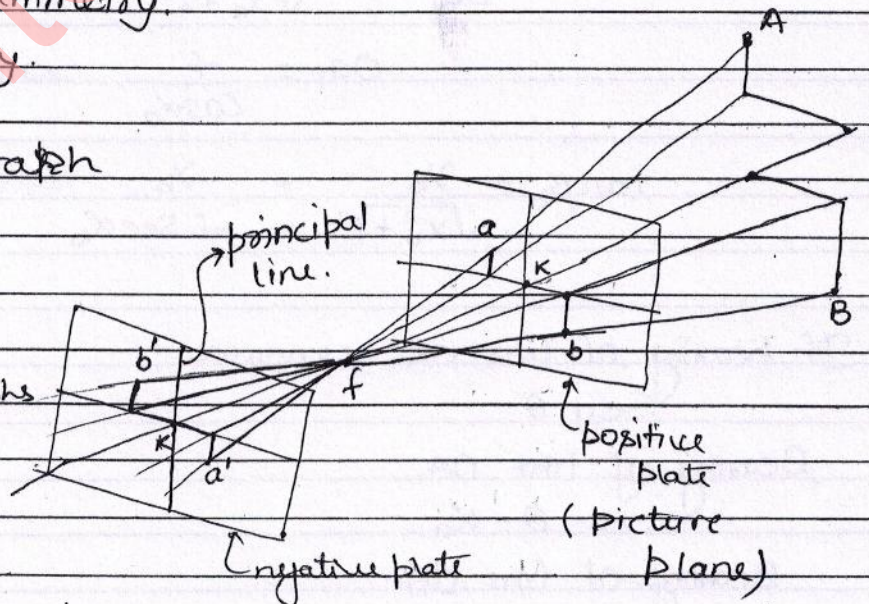 ammetry.
y.
A
aph
principal
line.
a
K
B
b'
b
f
hs
K
a'
positive
plate
(picture
plane)
negative plate